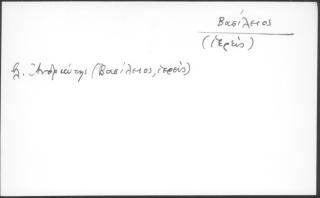 Βασίλειος
(ἱερεὺς)
βλ. Ἀνδριώτης (Βασίλειος, ἱερεὺς)